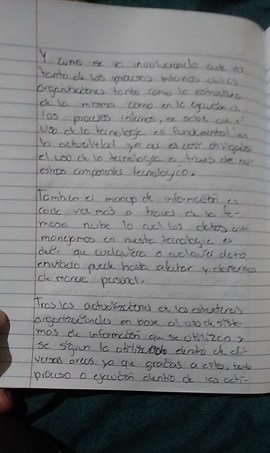 Y como se va involucrando cada vez
tanto de los procesos internos de las
organizaciones tanto como la estructura
de la misma como en la
los procesos internos, es decir que el
uso de la tecnología es fundamental en
la actualidad ya que es decir
el uso de la tecnología a traves de nu
estros componentes tecnologico.
Tambien el manejo de información es
cada vez mas a traves de la fa
mosa nube lo cual los datos que
manejamos en nuestra tecnologia es
decir que cualquiera o cualquier dato
enviado puede hasta afectar y
de manera personal.
Tras las actualizaciones de las estructuras
organizacionales en base al uso de siste
mas de información que se utilizan y
se siguen utilizando dentro de di
versas areas, ya que gracias a esto, tanto
proceso o ejecución dentro de las acti-